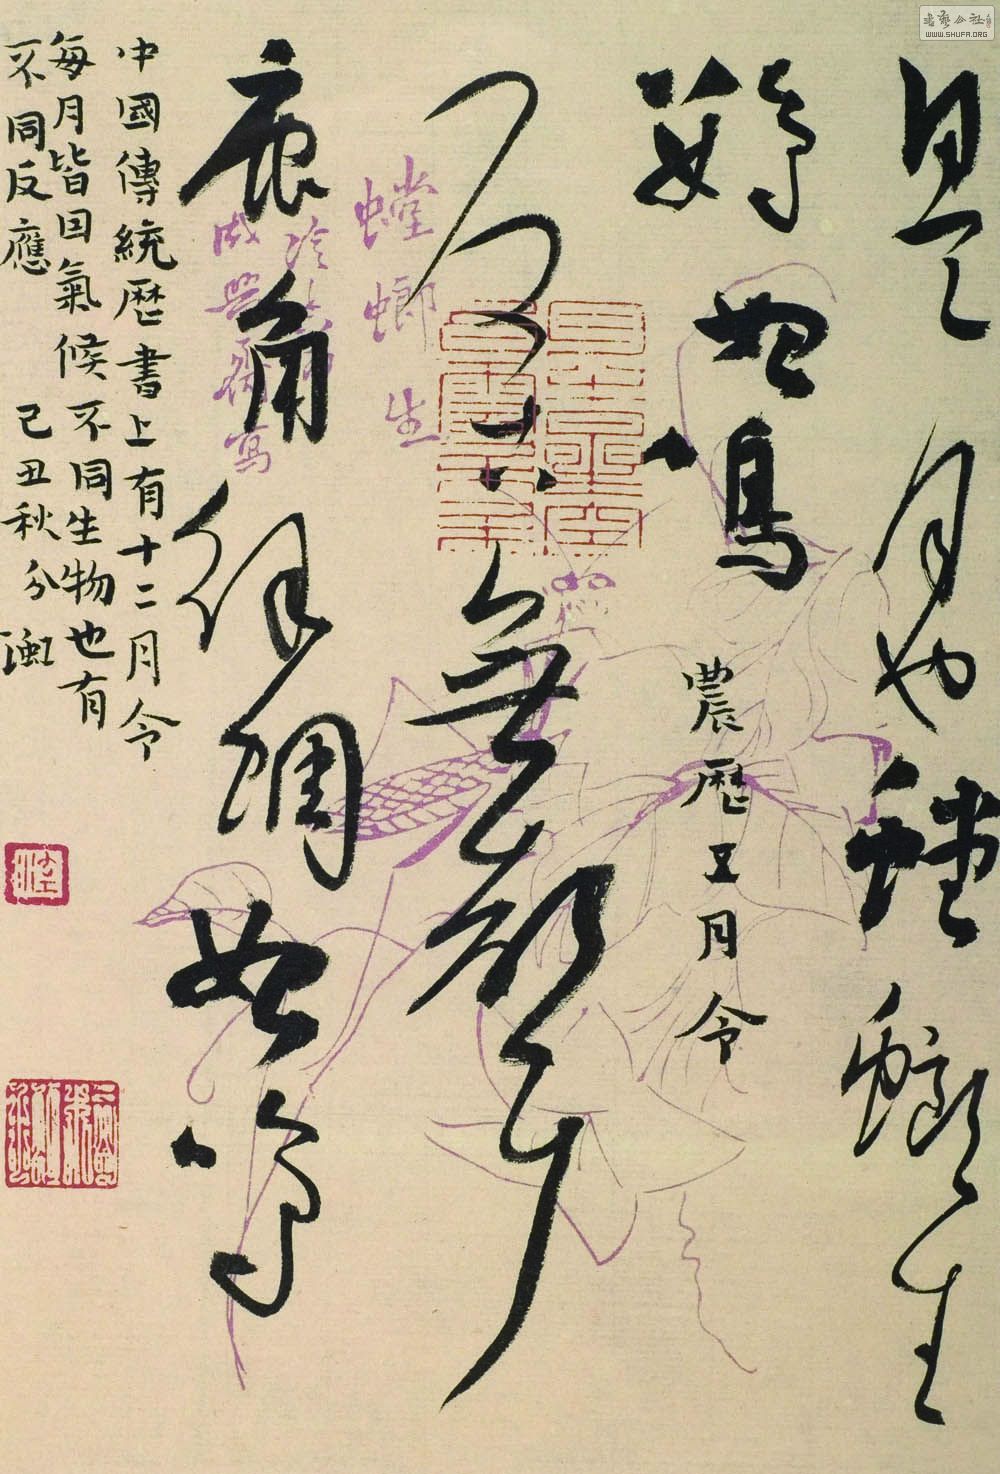 是月也螳螂生
始鳴
農曆五月令
反舌無聲
鹿角解蜩始鳴
螳螂生
中國傳統曆書上有十二月令
每月皆因氣候不同生物也有
不同反應 己丑秋分
WWW.SHUFA.ORG